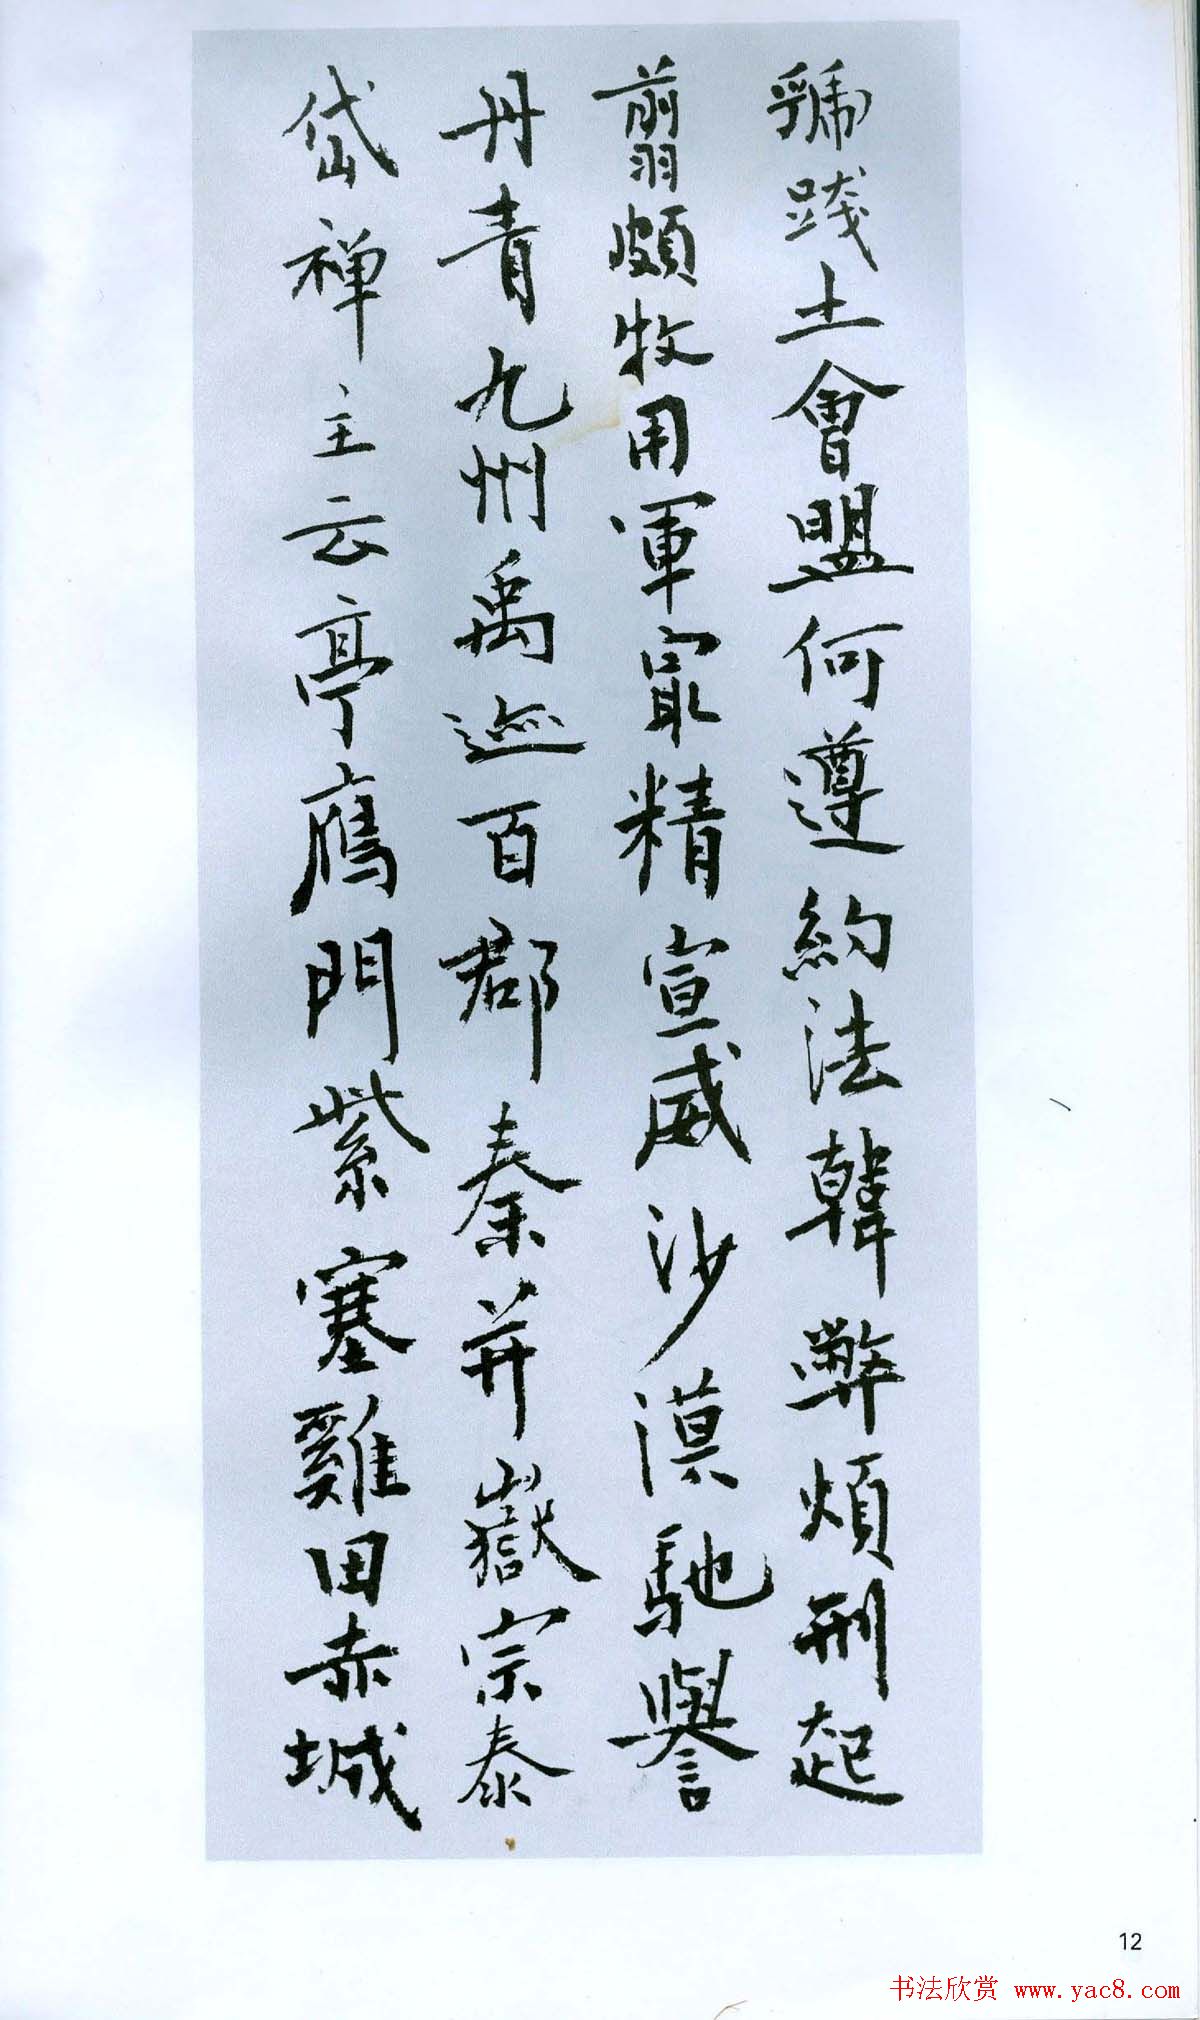 虢踐土會盟何遵約法韓弊煩刑起
翦頗牧用軍㝡精宣威沙漠馳譽
丹青九州禹迹百郡秦并嶽宗泰
岱禅主云亭鴈門紫塞雞田赤城
12
书法欣赏 www.yac8.com